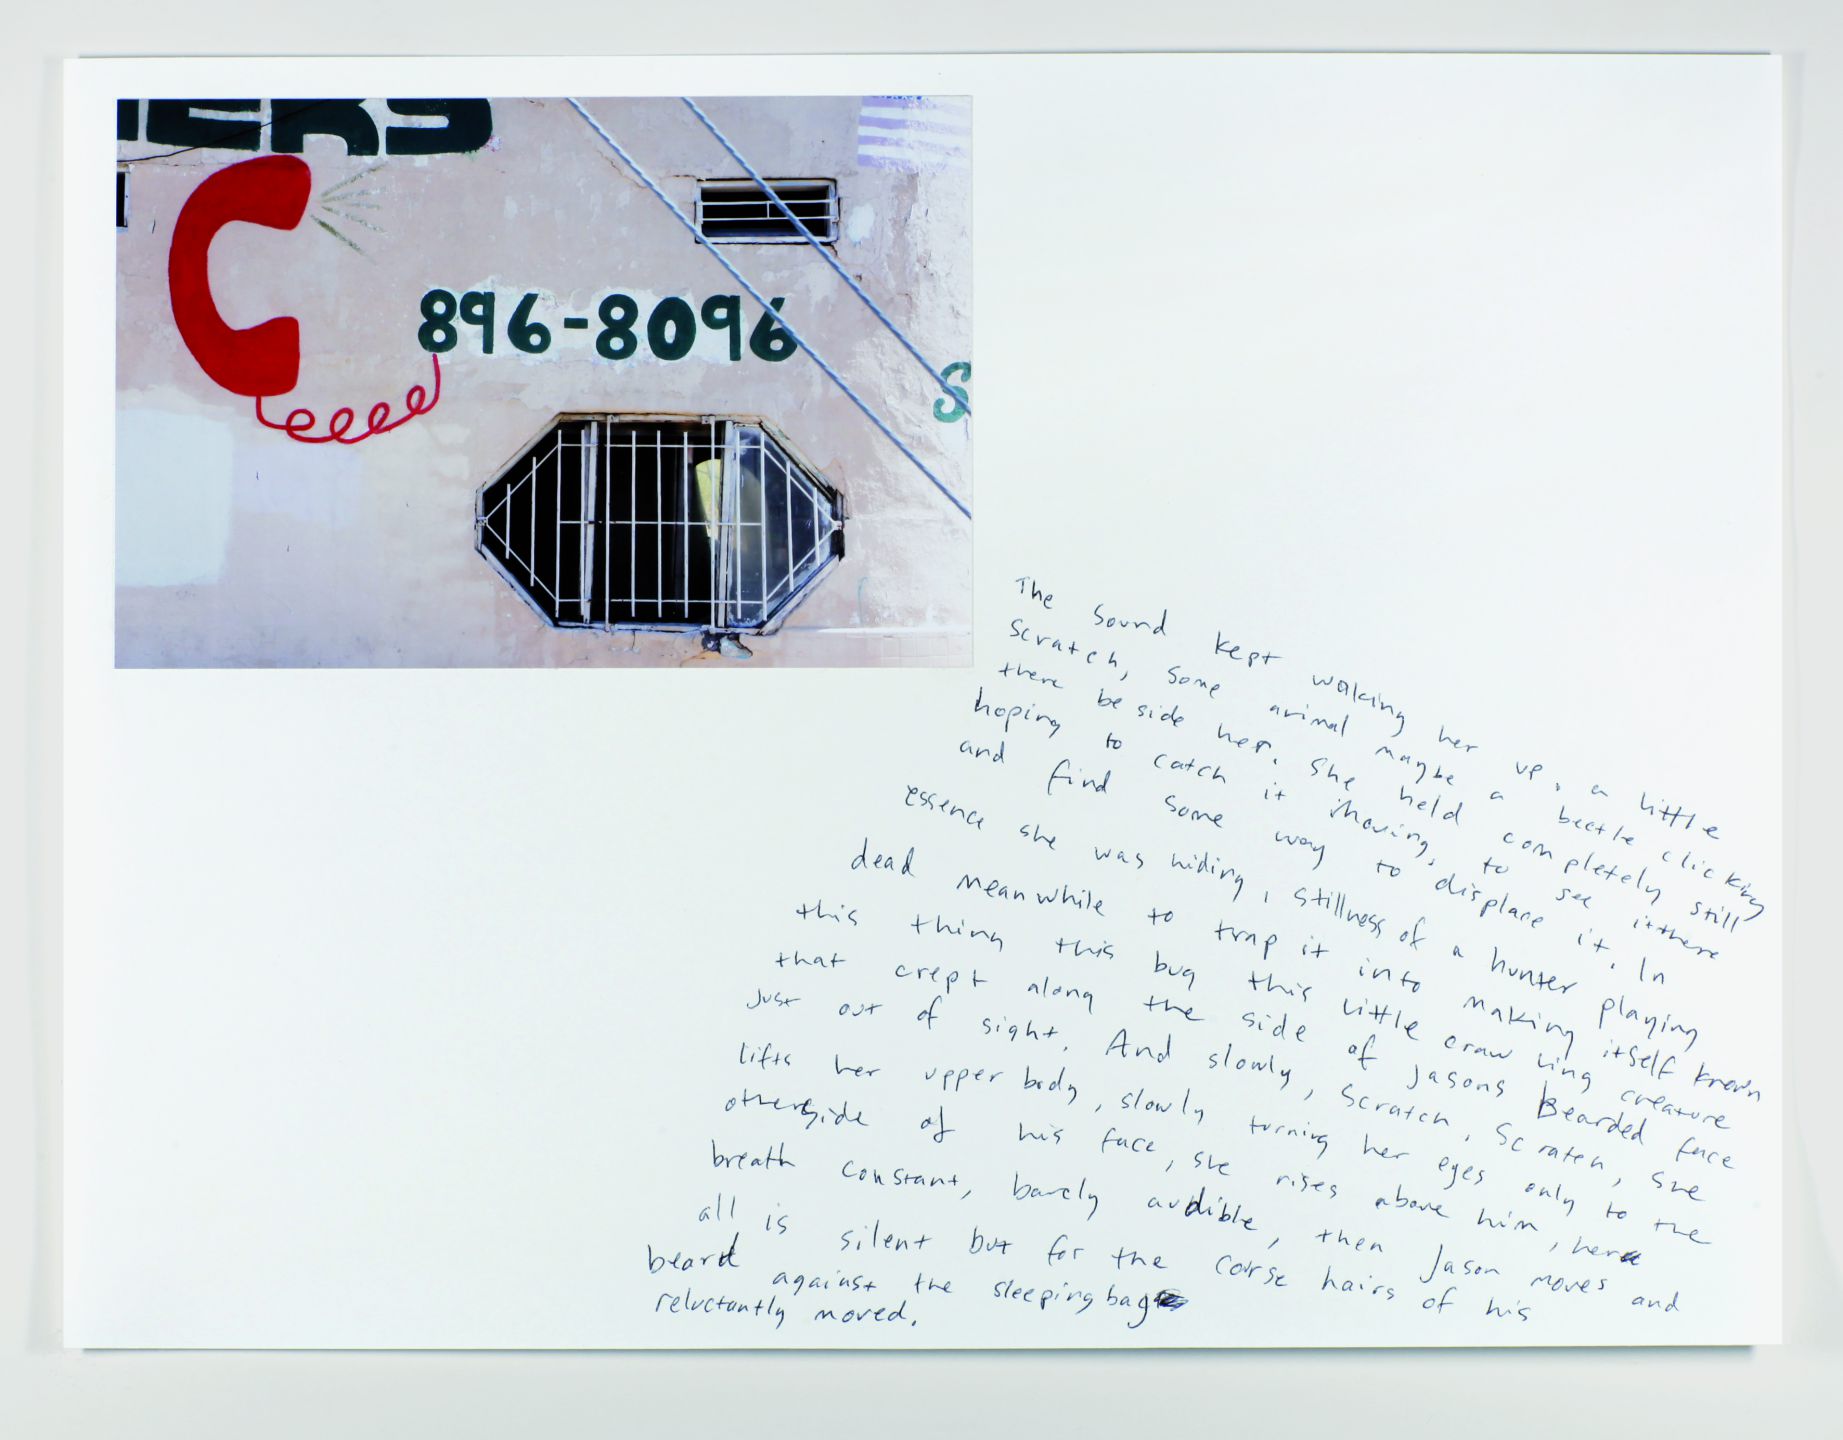 HERS
896-8096
S
The sound kept waking her up, a little
Scratch, some animal maybe a beetle clicking
there beside her. She held completely still
hoping to catch it moving, to see it there
and find some way to displace it. In
essence she was hiding, stillness of a hunter playing
dead meanwhile to trap it into making itself known
this thing this bug this little crawling creature
that crept along the side of Jasons Bearded face
just out of sight. And slowly, Scratch, Scratch, she
lifts her upper body, slowly turning her eyes only to the
otherside of his face, she rises above him, her
breath constant, barely audible, then Jason moves and
all is silent but for the course hairs of his
beard against the sleepingbag
reluctantly moved.